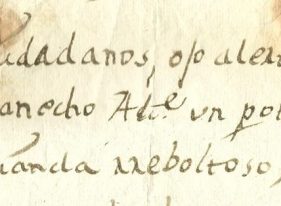 udadanos, ojo aler
anecho Alc.e un po
anda rreboltoso,